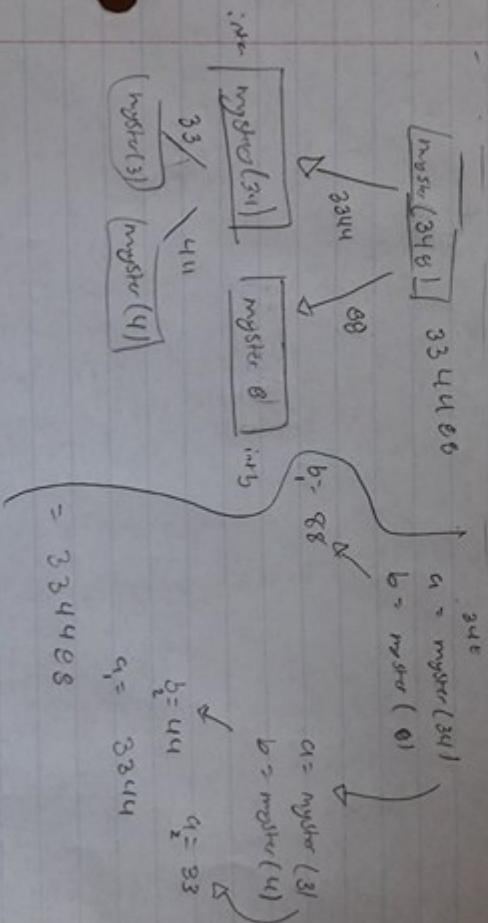 myster(348) 334488
3344
88
int a
myster(34)
myster 8
int b
33
44
myster(3)
myster(4)
348
a = myster(34)
b = myster(8)
b₁ = 88
a = myster(3)
b = myster(4)
b₂ = 44
a₂ = 33
a₁ = 3344
= 334488